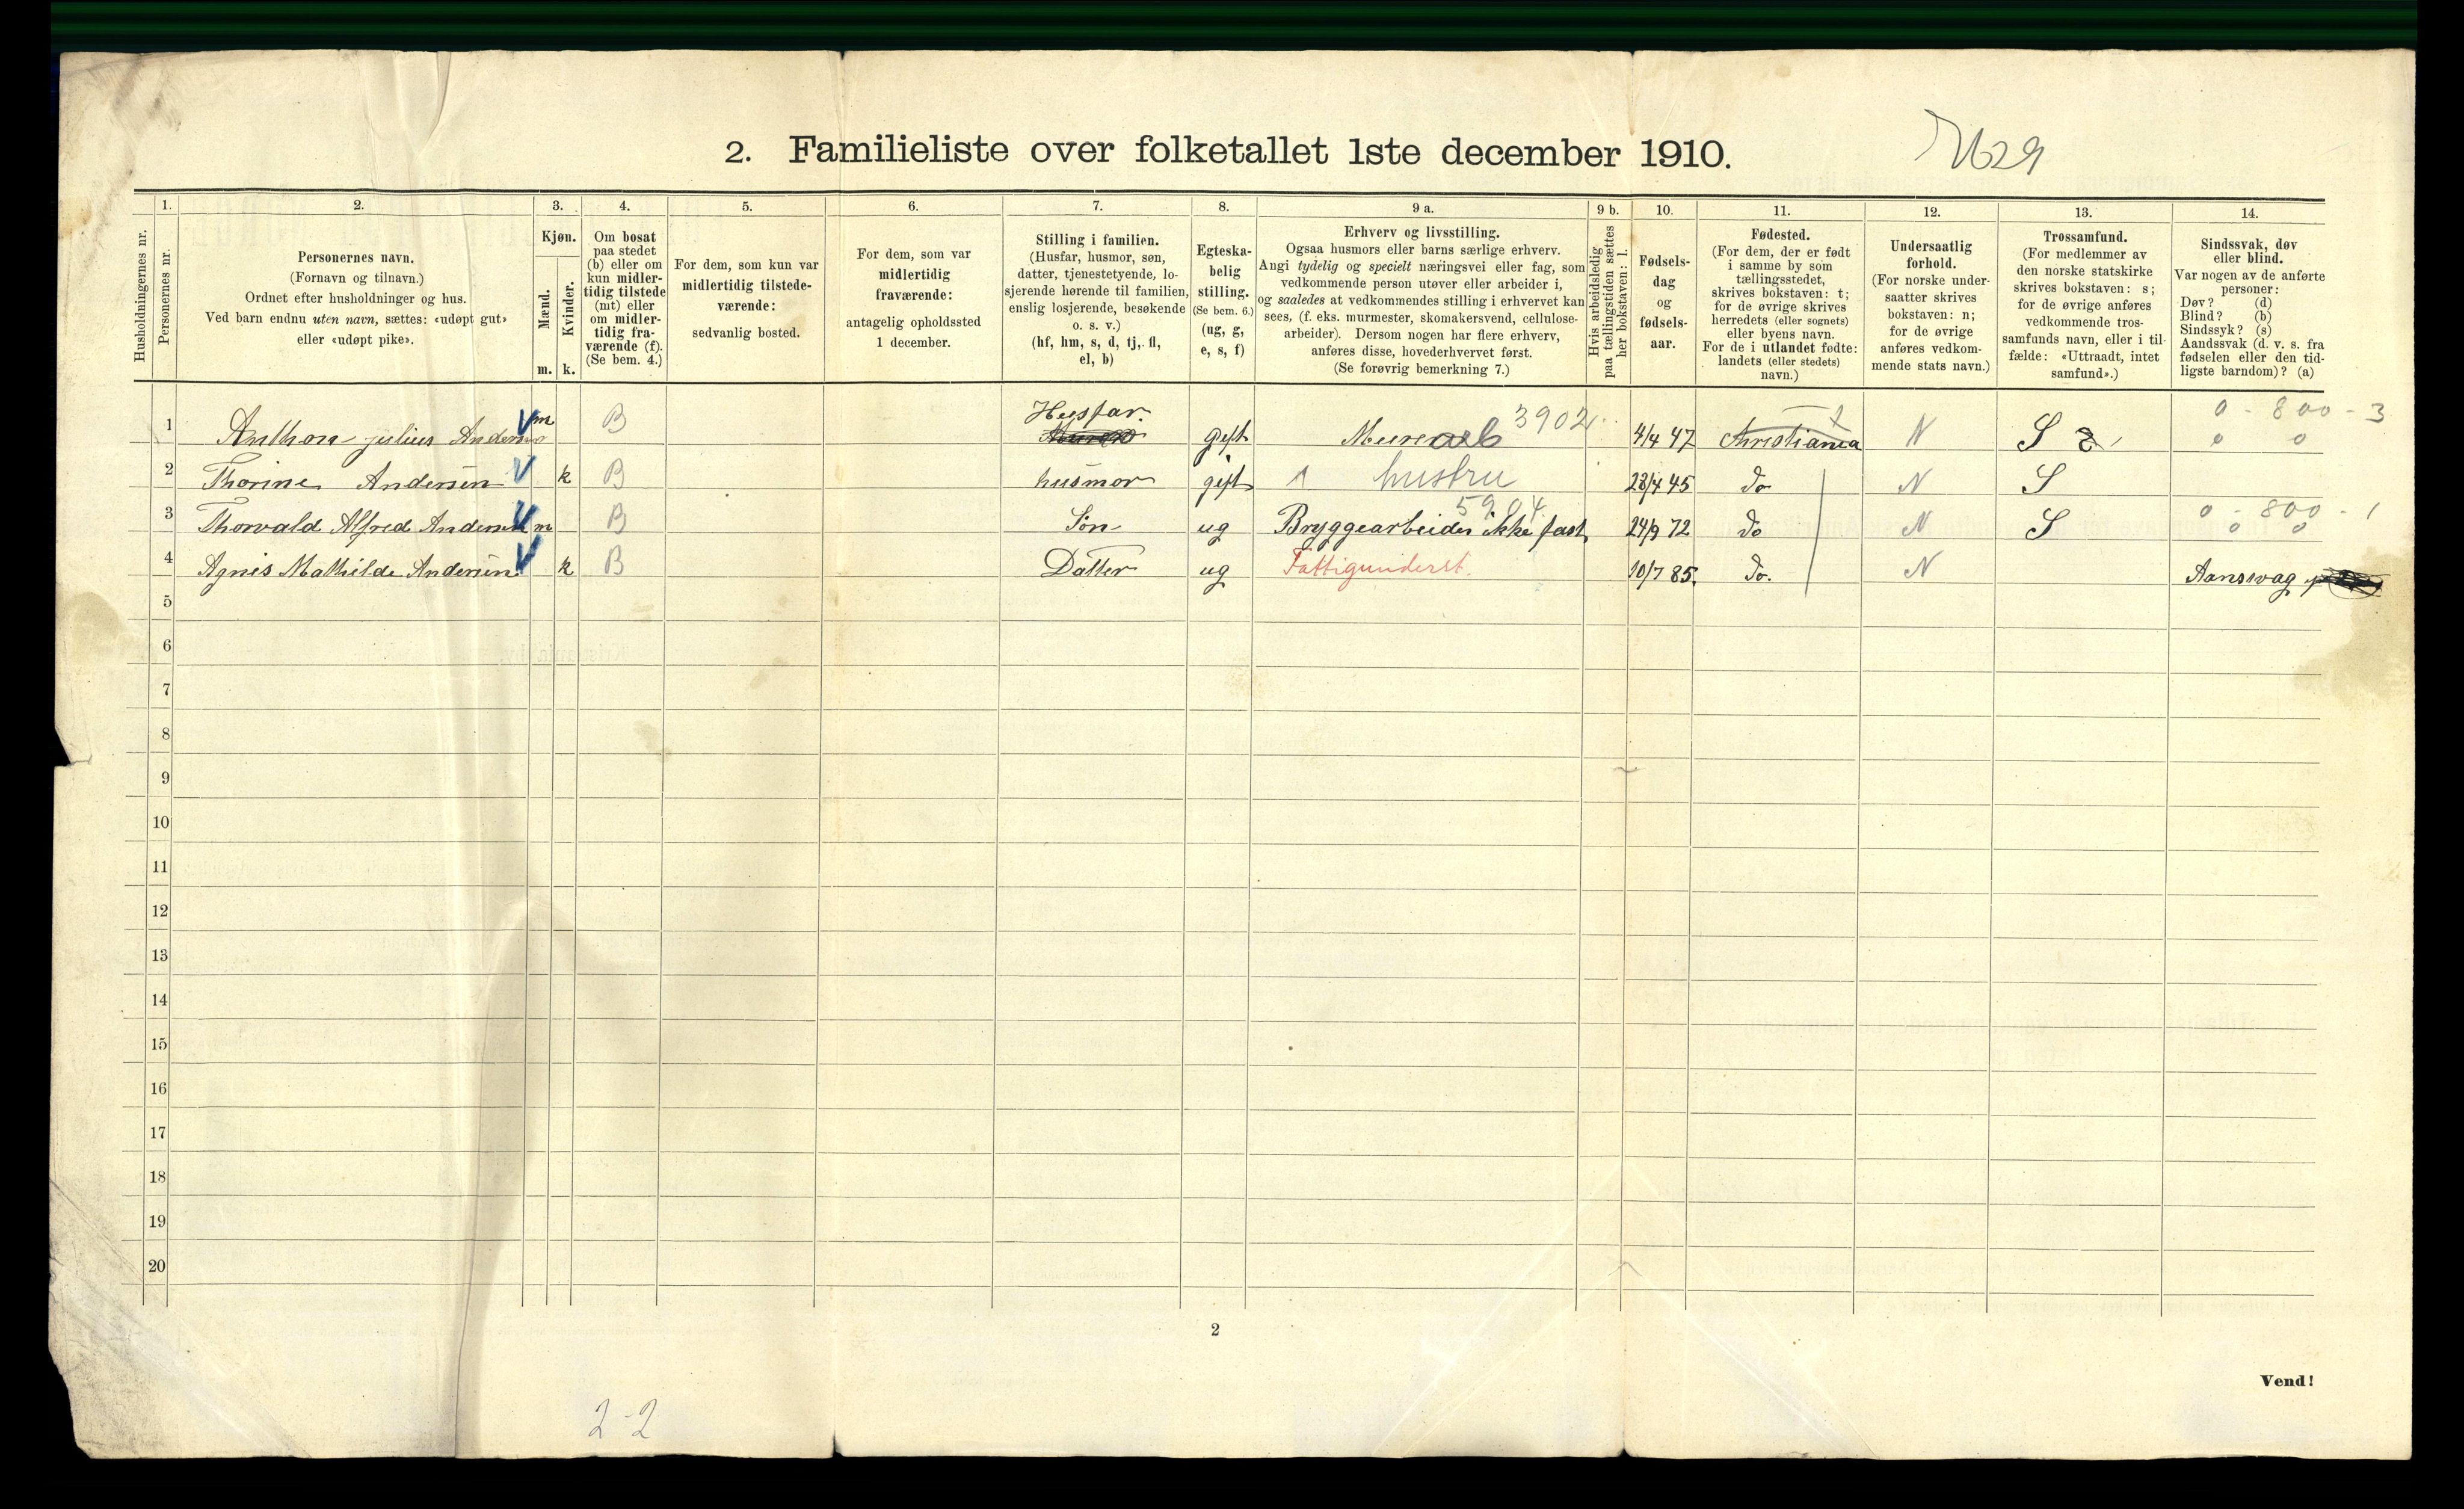 2. Familieliste over folketallet 1ste december 1910.
7629
Husholdningernes nr.
1.
Personernes nr.
2.
Personernes navn.
(Fornavn og tilnavn.)
Ordnet efter husholdninger og hus.
Ved barn endnu uten navn, sættes: «udøpt gut»
eller «udøpt pike».
3.
Kjøn.
Mænd.
Kvinder.
m. k.
4.
Om bosat
paa stedet
(b) eller om
kun midler-
tidig tilstede
(mt) eller
om midler-
tidig fra-
værende (f).
(Se bem. 4.)
5.
For dem, som kun var
midlertidig tilstede-
værende:
sedvanlig bosted.
6.
For dem, som var
midlertidig
fraværende:
antagelig opholdssted
1 december.
7.
Stilling i familien.
(Husfar, husmor, søn,
datter, tjenestetyende, lo-
sjerende hørende til familien,
enslig losjerende, besøkende
o. s. v.)
(hf, hm, s, d, tj, fl,
el, b)
8.
Egteska-
belig
stilling.
(Se bem. 6.)
(ug, g,
e, s, f)
9 a.
Erhverv og livsstilling.
Ogsaa husmors eller barns særlige erhverv.
Angi tydelig og specielt næringsvei eller fag, som
vedkommende person utøver eller arbeider i,
og saaledes at vedkommendes stilling i erhvervet kan
sees, (f. eks. murmester, skomakersvend, cellulose-
arbeider). Dersom nogen har flere erhverv,
anføres disse, hovederhvervet først.
(Se forøvrig bemerkning 7.)
9 b.
Hvis arbeidsledig
paa tællingstiden sættes
her bokstaven: l.
10.
Fødsels-
dag
og
fødsels-
aar.
11.
Fødested.
(For dem, der er født
i samme by som
tællingsstedet,
skrives bokstaven: t;
for de øvrige skrives
herredets (eller sognets)
eller byens navn.
For de i utlandet fødte:
landets (eller stedets)
navn.)
12.
Undersaatlig
forhold.
(For norske under-
saatter skrives
bokstaven: n;
for de øvrige
anføres vedkom-
mende stats navn.)
13.
Trossamfund.
(For medlemmer av
den norske statskirke
skrives bokstaven: s;
for de øvrige anføres
vedkommende tros-
samfunds navn, eller i til-
fælde: «Uttraadt, intet
samfund».)
14.
Sindssvak, døv
eller blind.
Var nogen av de anførte
personer:
Døv? (d)
Blind? (b)
Sindssyk? (s)
Aandssvak (d. v. s. fra
fødselen eller den tid-
ligste barndom)? (a)
Husfar. 3902 t 0 - 800 - 3
1 Anthon julius Andersen m B gift Murerarb 4/4 47 Christiania N S 0 0
2 Thorine Andersen k B husmor gift 1 hustru 23/4 45 do N S
5904 0 - 800 - 1
3 Thorvald Alfred Andersen m B Søn ug Bryggearbeider ikke fast 24/9 72 do N S 0 0
4 Agnes Mathilde Andersen k B Datter ug Fattigunderst. 10/7 85. do. N Aansvag
5
6
7
8
9
10
11
12
13
14
15
16
17
18
19
20
2
Vend!
2-2